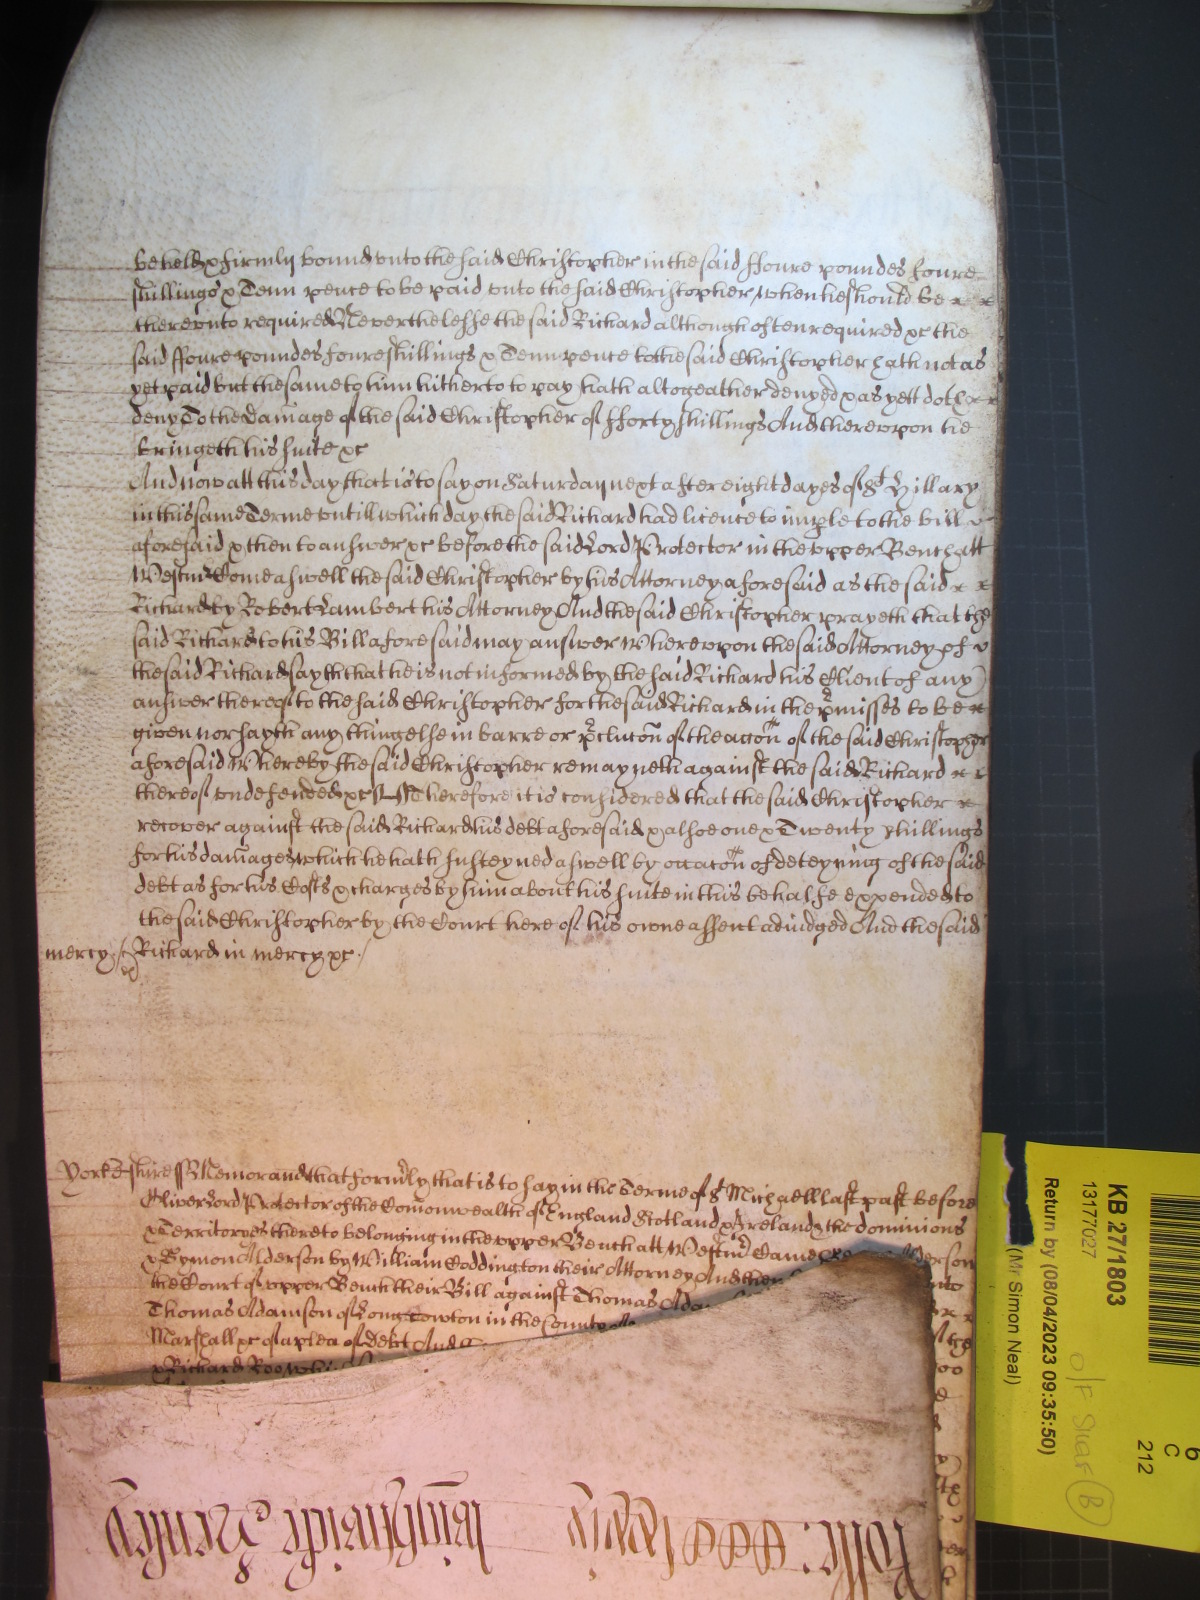 be held & firmly bound unto the said Christopher in the said ffoure poundes foure
shillings & Tenn pence to be paid unto the said Christopher when he should be
thereunto required Neverthelesse the said Richard although often required &c the
said ffoure poundes foure shillings & Tenn pence to the said Christopher hath not as
yet paid but the same to him hitherto to pay hath altogeather denyed & as yett doth
deny To the damage of the said Christopher of fforty shillings And thereupon he
bringeth his suite &c
And now att this day that is to say on Saturday next after eight dayes of St Hillary
in this same Terme untill which day the said Richard had licence to imple to the bill
aforesaid & then to answer &c before the said Lord Protector in the upper Bench att
Westmr Come aswell the said Christopher by his Attorney aforesaid as the said
Richard by Robert Lambert his Attorney And the said Christopher prayeth that the
said Richard to his Bill aforesaid may answer Whereupon the said Attorney of
the said Richard sayth that he is not informed by the said Richard his Client of any
answer thereof to the said Christopher for the said Richard in the pmisses to be
given nor sayth any thinge else in barre or pclucon of the accon of the said Christopher
aforesaid Whereby the said Christopher remayneth against the said Richard
thereof undefended &c Therefore it is considered that the said Christopher
recover against the said Richard his debt aforesaid & alsoe one & Twenty shillings
for his damages which he hath susteyned aswell by occacon of deteyning of the said
debt as for his Costs & charges by him about his suite in this behalfe expended to
the said Christopher by the Court here of his owne assent adiudged And the said
mercy Richard in mercy &c
Yorkeshire ss Memorand that formly that is to say in the Terme of St Michaell last past before
Oliver Lord Protector of the Comonwealth of England Scotland & Ireland & the dominions
& Territoryes thereto belonging in the upper Bench att Westmr Came
& Symon Alderson by William Coddington their Attorney And
the Court of upper Bench their Bill against Thomas
Thomas Adamson of Long Cowton in the County of
Marshall &c of a plea of debt And
& Richard Roe
Rolle
KB 27/1803
13177027
Return by (08/04/2023 09:35:50)
(Mr Simon Neal)
O/F Staf B
6
C
212